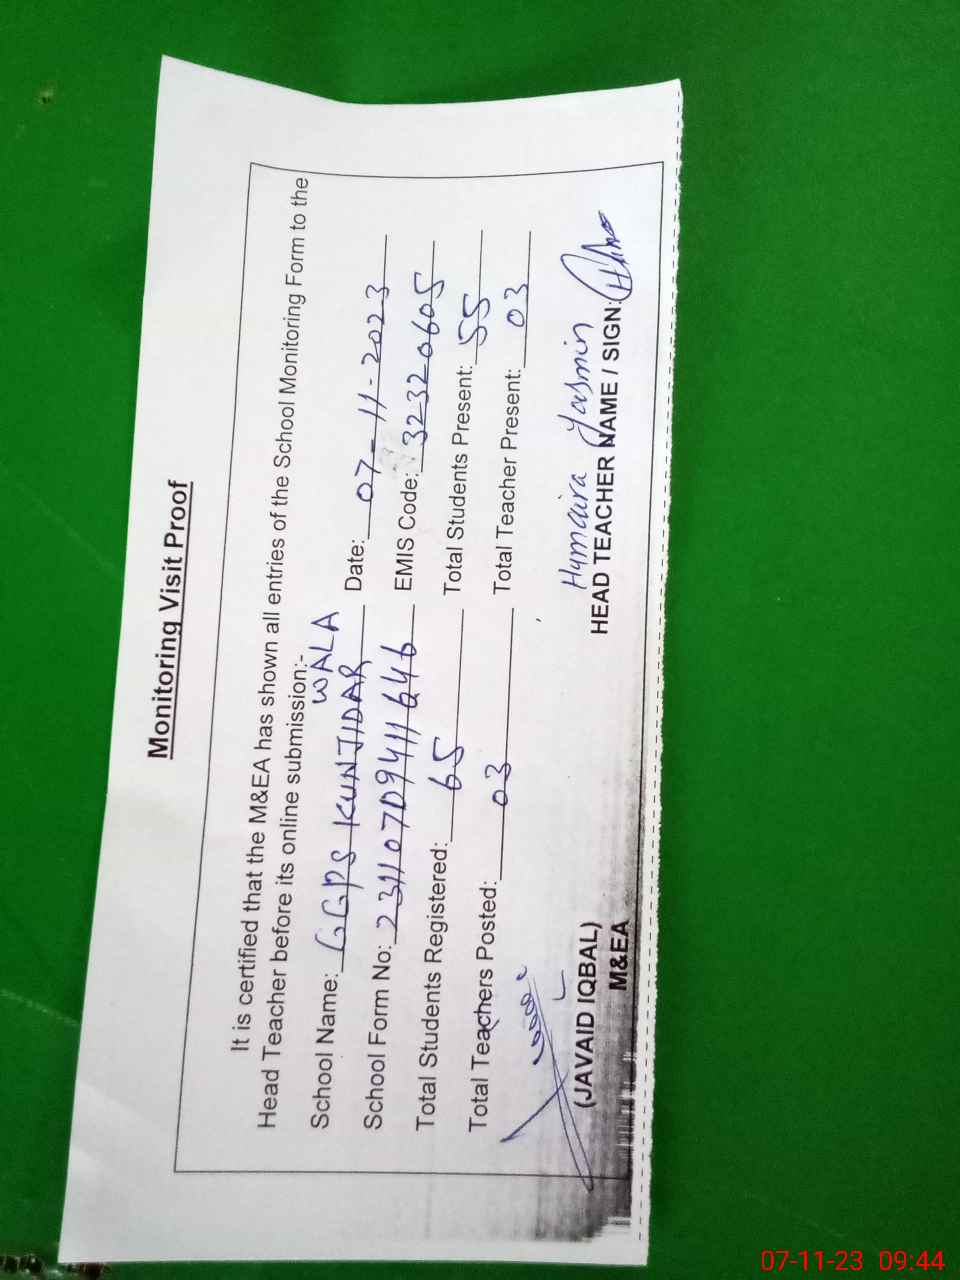 Monitoring Visit Proof
It is certified that the M&EA has shown all entries of the School Monitoring Form to the
Head Teacher before its online submission:-
WALA
School Name: GGPS KUNJIDAR Date: 07-11-2023
School Form No: 231107094116 46 EMIS Code: 32320605
Total Students Registered: 65 Total Students Present: 55
Total Teachers Posted: 03 Total Teacher Present: 03
Humaira Yasmin
(JAVAID IQBAL) HEAD TEACHER NAME / SIGN:
M&EA
07-11-23 09:44